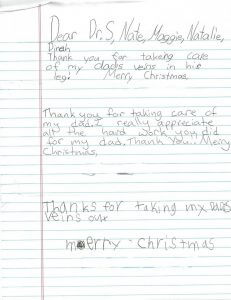 Dear Dr. S, Nate, Maggie, Natalie,
Dinah
Thank you for takeng care
of my dads veins in his
leg! Merry Christmas,
Thank you for taking care of
my dad. I really appreciate
all the hard work you did
for my dad. Thank You.. Merry
Christmas,
Thanks for taking my DADS
veins out
merry christmas